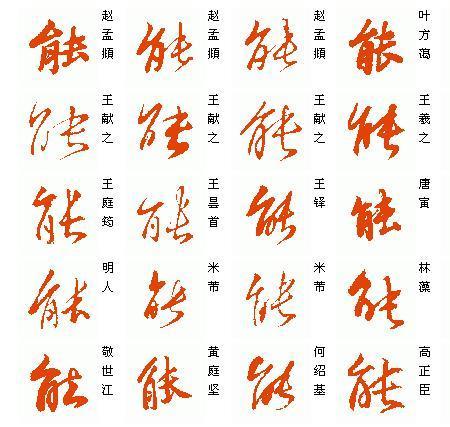 能 赵孟頫 能 赵孟頫 能 赵孟頫 能 叶方蔼
能 王献之 能 王献之 能 王献之 能 王羲之
能 王庭筠 能 王昙首 能 王铎 能 唐寅
能 明人 能 米芾 能 米芾 能 林藻
能 敬世江 能 黄庭坚 能 何绍基 能 高正臣